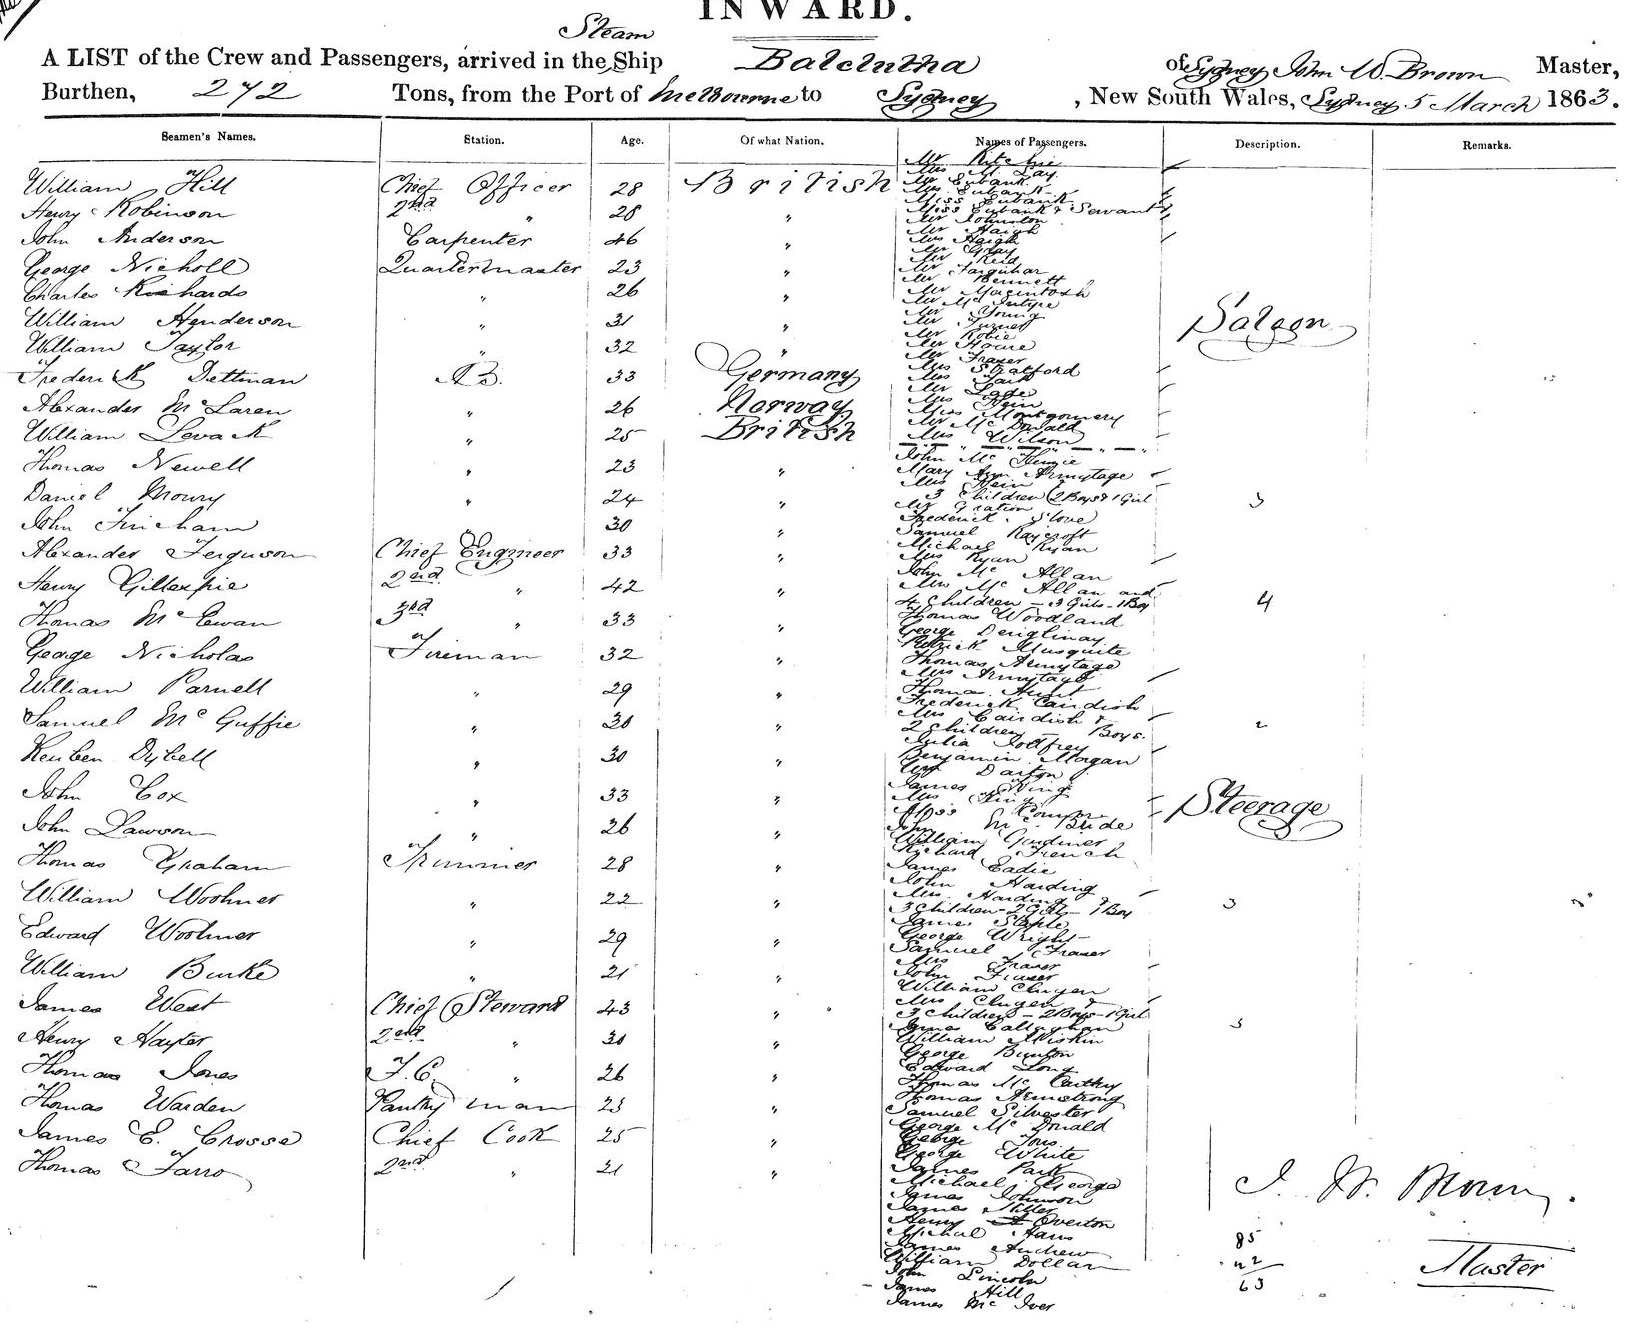 INWARD.
Steam
A LIST of the Crew and Passengers, arrived in the Ship Balclutha of Sydney John W. Brown Master,
Burthen, 272 Tons, from the Port of Melbourne to Sydney, New South Wales, Sydney 5 March 1863.
Seamen's Names. Station. Age. Of what Nation. Names of Passengers. Description. Remarks.
William Hill Chief Officer 28 British
Henry Robinson 2nd " 28 "
John Anderson Carpenter 46 "
George Nicholl Quartermaster 23 "
Charles Richards " 26 "
William Henderson " 31 "
William Taylor " 32 "
Frederick Dettman AB. 33 Germany
Alexander McLaren " 26 Norway
William Levack " 25 British
Thomas Newell " 23 "
Daniel Mowry " 24 "
John Fincham 30 "
Alexander Ferguson Chief Engineer 33 "
Henry Gillespie 2nd " 42 "
Thomas McEwan 3rd " 33 "
George Nicholas Fireman 32 "
William Parnell " 29 "
Samuel McGuffie " 30 "
Reuben Dybell " 30 "
John Cox " 33 "
John Lawson " 26 "
Thomas Graham Trimmer 28 "
William Woolmer " 22 "
Edward Woolmer " 29 "
William Burke " 21 "
James West Chief Steward 43 "
Henry Hayter 2nd " 30 "
Thomas Jones F.C. " 26 "
Thomas Warden Pantry man 23 "
James E. Crosse Chief Cook 25 "
Thomas Farro 2nd " 21 "
Mr Ritchie
Mrs M. Lay
Mr Eubank
Mrs Eubank
Miss Eubank
Miss Eubank & Servant
Mr Johnston
Mr Haigh
Mrs Haigh
Mr Gray
Mr Reid
Mr Farquhar
Mr Bennett
Mr Macintosh
Mr McIntyre
Mr Young
Mr Turner
Mr Robie
Mr Howe
Mr Fraser
Mrs Stratford
Mrs Park
Mr
Mrs Hein
Miss Montgomery
Mr McDonald
Mrs Wilson
Saloon
John McKenzie
Mary Ann Armytage
Mrs Hein &
3 Children (2 Boys & 1 Girl 3
Mr Gration
Frederick Slove
Samuel Raycroft
Michael Ryan
Mrs Ryan
John McAllan
Mrs McAllan and
4 Children - 3 Girls - 1 Boy 4
Thomas Woodland
George
Patrick Musquite
Thomas Armytage
Mrs Armytage
Thomas Hunt
Frederick Cairdish
Mrs Cairdish &
2 Children - Boys. 2
Julia Godfrey
Benjamin Morgan
Darton
James King
Mrs King
Miss
John McBride
William Gardiner
Richard French
James Eadie
John Harding
Mrs. Harding
3 Children - 2 Girls - 1 Boy 3
James Staple
George Wright
Samuel Fraser
Mrs Fraser
John Fraser
William Clugen
Mrs Clugen &
3 Children - 2 Boys - 1 Girl 3
Callaghan
William Miskin
George Bunton
Edward Long
Thomas McCarthy
Thomas Armstrong
Samuel Silvester
George McDonald
George Tons
George White
James Park
Michael George
James Johnson
James Miller
Henry Overton
Michael Hans
James Andrew
William Dollar
John Lincoln
James Hill
James McIver
Steerage
J. W. Brown.
Master
85
63